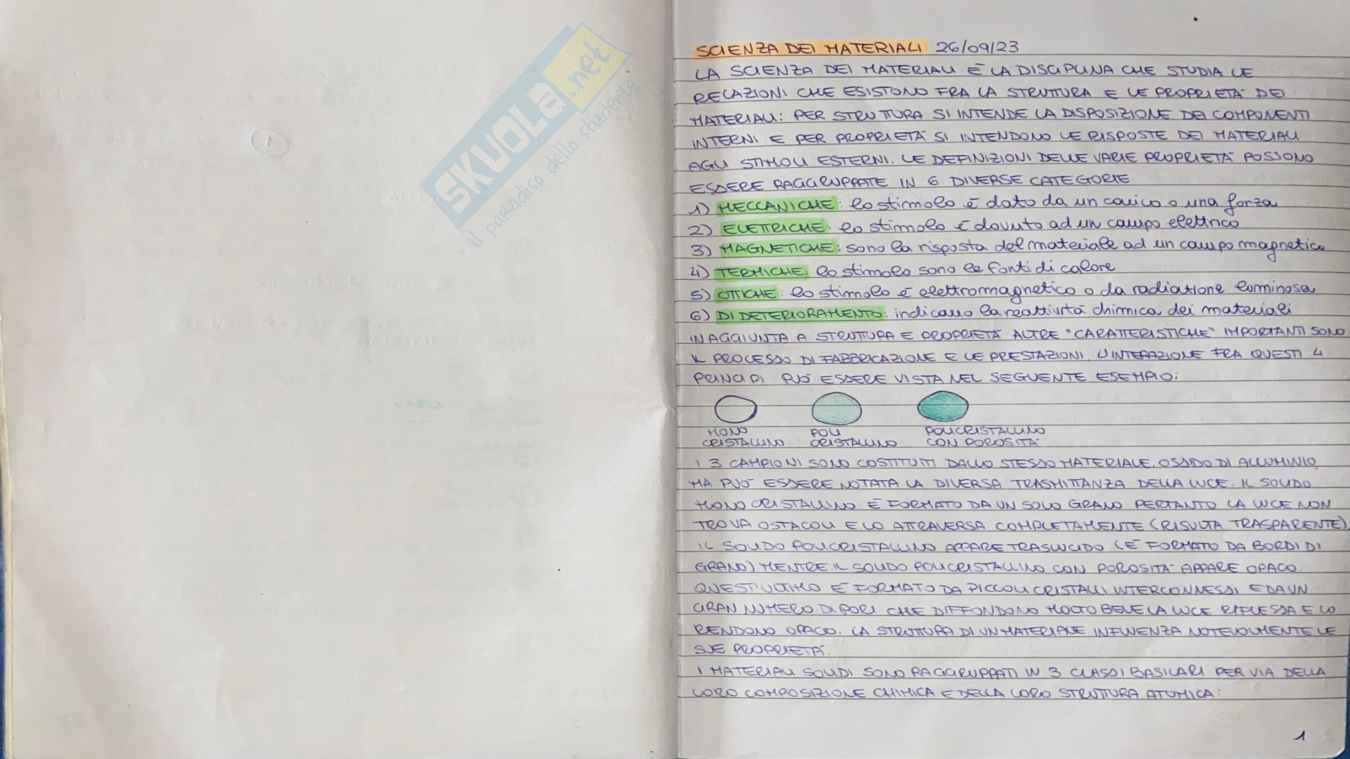 SKUOLA.net
il paradiso dello studente
SCIENZA DEI MATERIALI 26/09/23
LA SCIENZA DEI MATERIALI È LA DISCIPLINA CHE STUDIA LE
RELAZIONI CHE ESISTONO FRA LA STRUTTURA E LE PROPRIETÀ DEI
MATERIALI: PER STRUTTURA SI INTENDE LA DISPOSIZIONE DEI COMPONENTI
INTERNI E PER PROPRIETÀ SI INTENDONO LE RISPOSTE DEI MATERIALI
AGLI STIMOLI ESTERNI. LE DEFINIZIONI DELLE VARIE PROPRIETÀ POSSONO
ESSERE RAGGRUPPATE IN 6 DIVERSE CATEGORIE
1) MECCANICHE: lo stimolo è dato da un carico o una forza
2) ELETTRICHE: lo stimolo è dovuto ad un campo elettrico
3) MAGNETICHE: sono la risposta del materiale ad un campo magnetico
4) TERMICHE: lo stimolo sono le fonti di calore
5) OTTICHE: lo stimolo è elettromagnetico o da radiazione luminosa
6) DI DETERIORAMENTO: indicano la reattività chimica dei materiali
IN AGGIUNTA A STRUTTURA E PROPRIETÀ ALTRE "CARATTERISTICHE" IMPORTANTI SONO
IL PROCESSO DI FABBRICAZIONE E LE PRESTAZIONI. L'INTERAZIONE FRA QUESTI 4
PRINCIPI PUÒ ESSERE VISTA NEL SEGUENTE ESEMPIO:
MONO
CRISTALLINO
POLI
CRISTALLINO
POLICRISTALLINO
CON POROSITÀ
I 3 CAMPIONI SONO COSTITUITI DALLO STESSO MATERIALE, OSSIDO DI ALLUMINIO,
MA PUÒ ESSERE NOTATA LA DIVERSA TRASMITTANZA DELLA LUCE. IL SOLIDO
MONO CRISTALLINO È FORMATO DA UN SOLO GRANO PERTANTO LA LUCE NON
TROVA OSTACOLI E LO ATTRAVERSA COMPLETAMENTE (RISULTA TRASPARENTE)
IL SOLIDO POLICRISTALLINO APPARE TRASLUCIDO (È FORMATO DA BORDI DI
GRANO) MENTRE IL SOLIDO POLICRISTALLINO CON POROSITÀ APPARE OPACO.
QUEST'ULTIMO È FORMATO DA PICCOLI CRISTALLI INTERCONNESSI E DA UN
GRAN NUMERO DI PORI CHE DIFFONDONO MOLTO BENE LA LUCE RIFLESSA E LO
RENDONO OPACO. LA STRUTTURA DI UN MATERIALE INFLUENZA NOTEVOLMENTE LE
SUE PROPRIETÀ.
I MATERIALI SOLIDI SONO RAGGRUPPATI IN 3 CLASSI BASILARI PER VIA DELLA
LORO COMPOSIZIONE CHIMICA E DELLA LORO STRUTTURA ATOMICA:
1